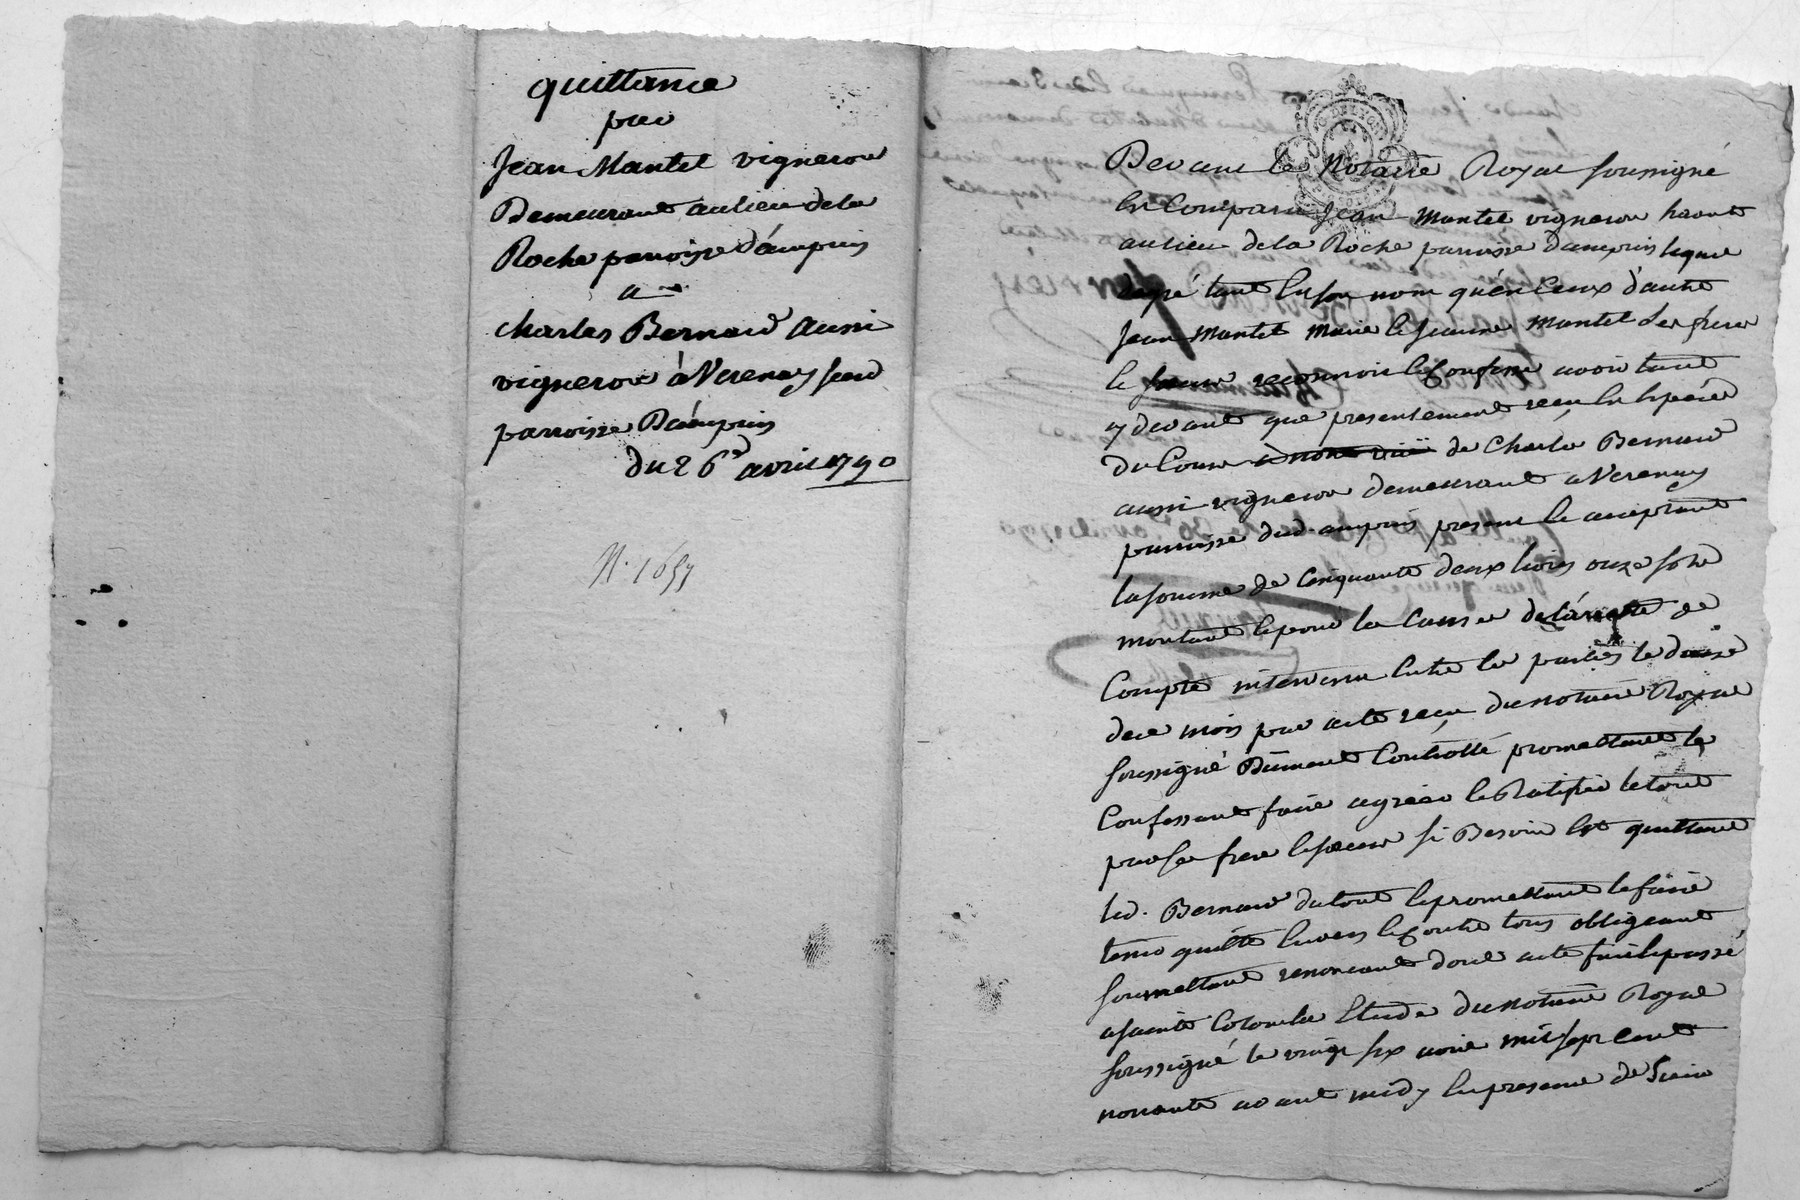 quittance
par
Jean Mantel vigneron
Demeurant au lieu de la
Roche parroisse d'ampuis
a
charles Bernard aussi
vigneron à Verenay susd
parroisse D'ámpuis
du 26e avril 1790
N. 1657
Devant le Notaire Royal soussigné
En Comparu Jean Mantel vigneron habitt
au lieu de la Roche parroisse d'ampuis lequel
degré tant En son nom qu'en Ceux d'autre
Jean Mantel Marie le Jeanne Mantel ses frere
Et soeur reconnoit Et Confesse avoir tant
cy devant que presentement reçu En Especes
du Cours de Charle Bernard
aussi vigneron demeurant a Verenay
parroisse dud. ampuis present Et acceptant
la somme de Cinquante deux livres onze sols
montant Et pour les Causes de l'árreté de
Compte intervenu Entre les parties le
dece mois par acte reçu du notaire Royal
soussigné Dûment Controllé promettant le
Confessant faire agréer Et Ratifier le tout
par ses frere Et soeur si Besoin Est quittant
led. Bernard du tout Et promettant le faire
tenir quitte Envers Et Contre tous obligeant
soumettant renonceant dont acte fait Et passé
a sainte Colombe Etude du notaire Royal
soussigné le vingt six avril mil sept cent
nonante avant midy En presence de Sieur